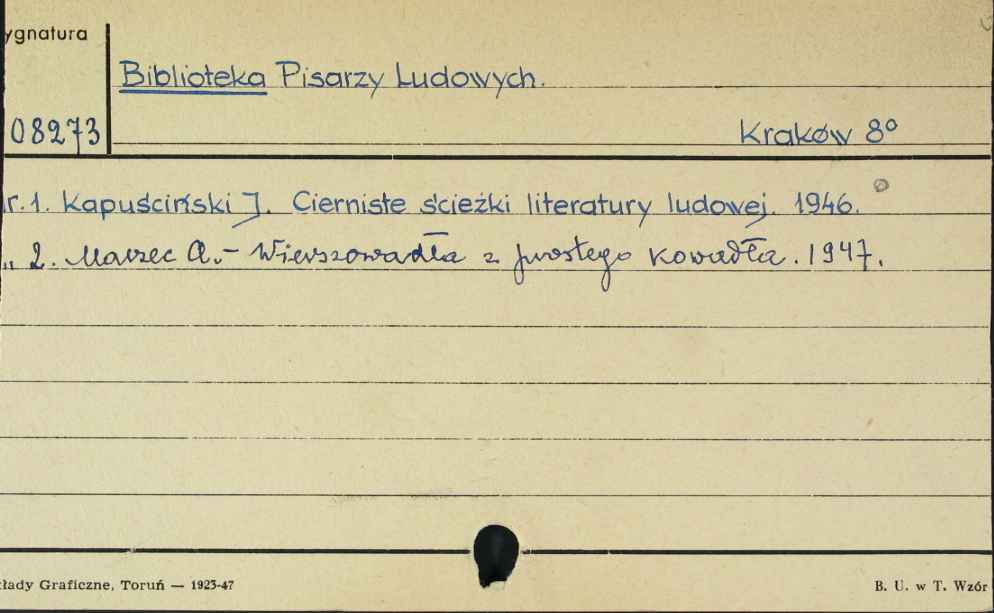 ygnatura
Biblioteka Pisarzy Ludowych.
08273
Kraków 8°
r. 1. Kapuściński J. Cierniste ścieżki literatury ludowej. 1946.
„ 2. Marzec A. – Wierszowadła z prostego kowadła. 1947.
kłady Graficzne, Toruń — 1923-47
B. U. w T. Wzór